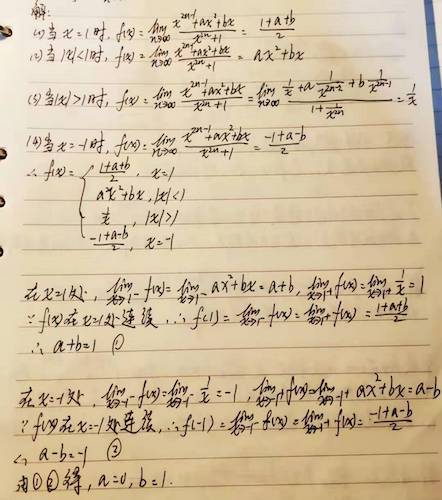 解:
(1)当 x=1时, f(x)=lim n→∞ (x^(2n-1)+ax²+bx)/(x^(2n)+1) = (1+a+b)/2
(2)当 |x|<1时, f(x)=lim n→∞ (x^(2n-1)+ax²+bx)/(x^(2n)+1) = ax²+bx
(3)当|x|>1时, f(x)=lim n→∞ (x^(2n-1)+ax²+bx)/(x^(2n)+1) = lim n→∞ (1/x + a 1/x^(2n-2) + b 1/x^(2n-1))/(1+1/x^(2n)) = 1/x
(4)当 x=-1时, f(x)=lim n→∞ (x^(2n-1)+ax²+bx)/(x^(2n)+1) = (-1+a-b)/2
∴ f(x)= { (1+a+b)/2, x=1
a²x²+bx, |x|<1
1/x, |x|>1
(-1+a-b)/2, x=-1
在x=1处, lim x→1⁻ f(x)=lim x→1⁻ ax²+bx=a+b, lim x→1⁺ f(x)=lim x→1⁺ 1/x=1
∵f(x)在x=1处连续, ∴f(1)=lim x→1⁻ f(x)=lim x→1⁺ f(x)=(1+a+b)/2
∴ a+b=1 ①
在x=-1处, lim x→-1⁻ f(x)=lim x→-1⁻ 1/x=-1, lim x→-1⁺ f(x)=lim x→-1⁺ ax²+bx=a-b
∵f(x)在x=-1处连续, ∴f(-1)=lim x→-1⁻ f(x)=lim x→-1⁺ f(x)=(-1+a-b)/2
∴ a-b=-1 ②
由①②得, a=0, b=1.